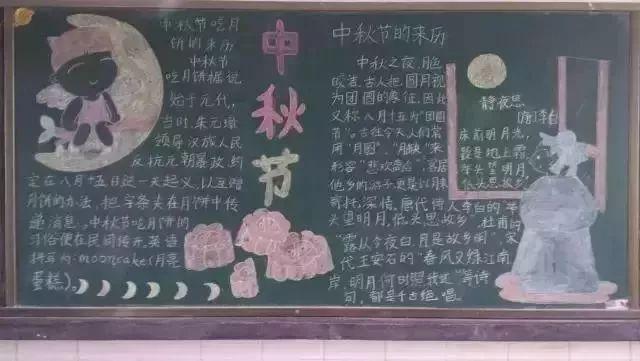 中秋节吃月
饼的来历
中秋节
吃月饼据说
始于元代，
当时，朱元璋
领导汉族人民
反抗元朝暴政，约
定在八月十五日这一天起义，以互赠
月饼的办法，把字条夹在月饼中传
递消息。中秋节吃月饼的
习俗便在民间传开，英语
拼写为：mooncake(月亮
蛋糕)。
中秋节
中秋节的来历
中秋之夜，月色
皎洁，古人把圆月视
为团圆的象征，因此，
又称八月十五为"团圆
节"。古往今来，人们常
用"月圆"、"月缺"来
形容"悲欢离合"，客居
他乡的游子更是以月来
寄托深情。唐代诗人李白的"举
头望明月，低头思故乡"、杜甫的
"露从今夜白，月是故乡明"、宋
代王安石的"春风又绿江南
岸，明月何时照我还"等诗
句，都是千古绝唱。
静夜思
[唐]李白
床前明月光，
疑是地上霜。
举头望明月，
低头思故乡。